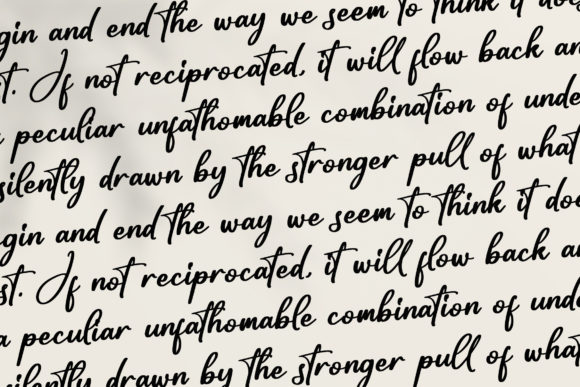 gin and end the way we seem to think it doe
st. If not reciprocated, it will flow back an
a peculiar unfathomable combination of unde
silently drawn by the stronger pull of what
gin and end the way we seem to think it doe
st. If not reciprocated, it will flow back an
a peculiar unfathomable combination of unde
silently drawn by the stronger pull of what